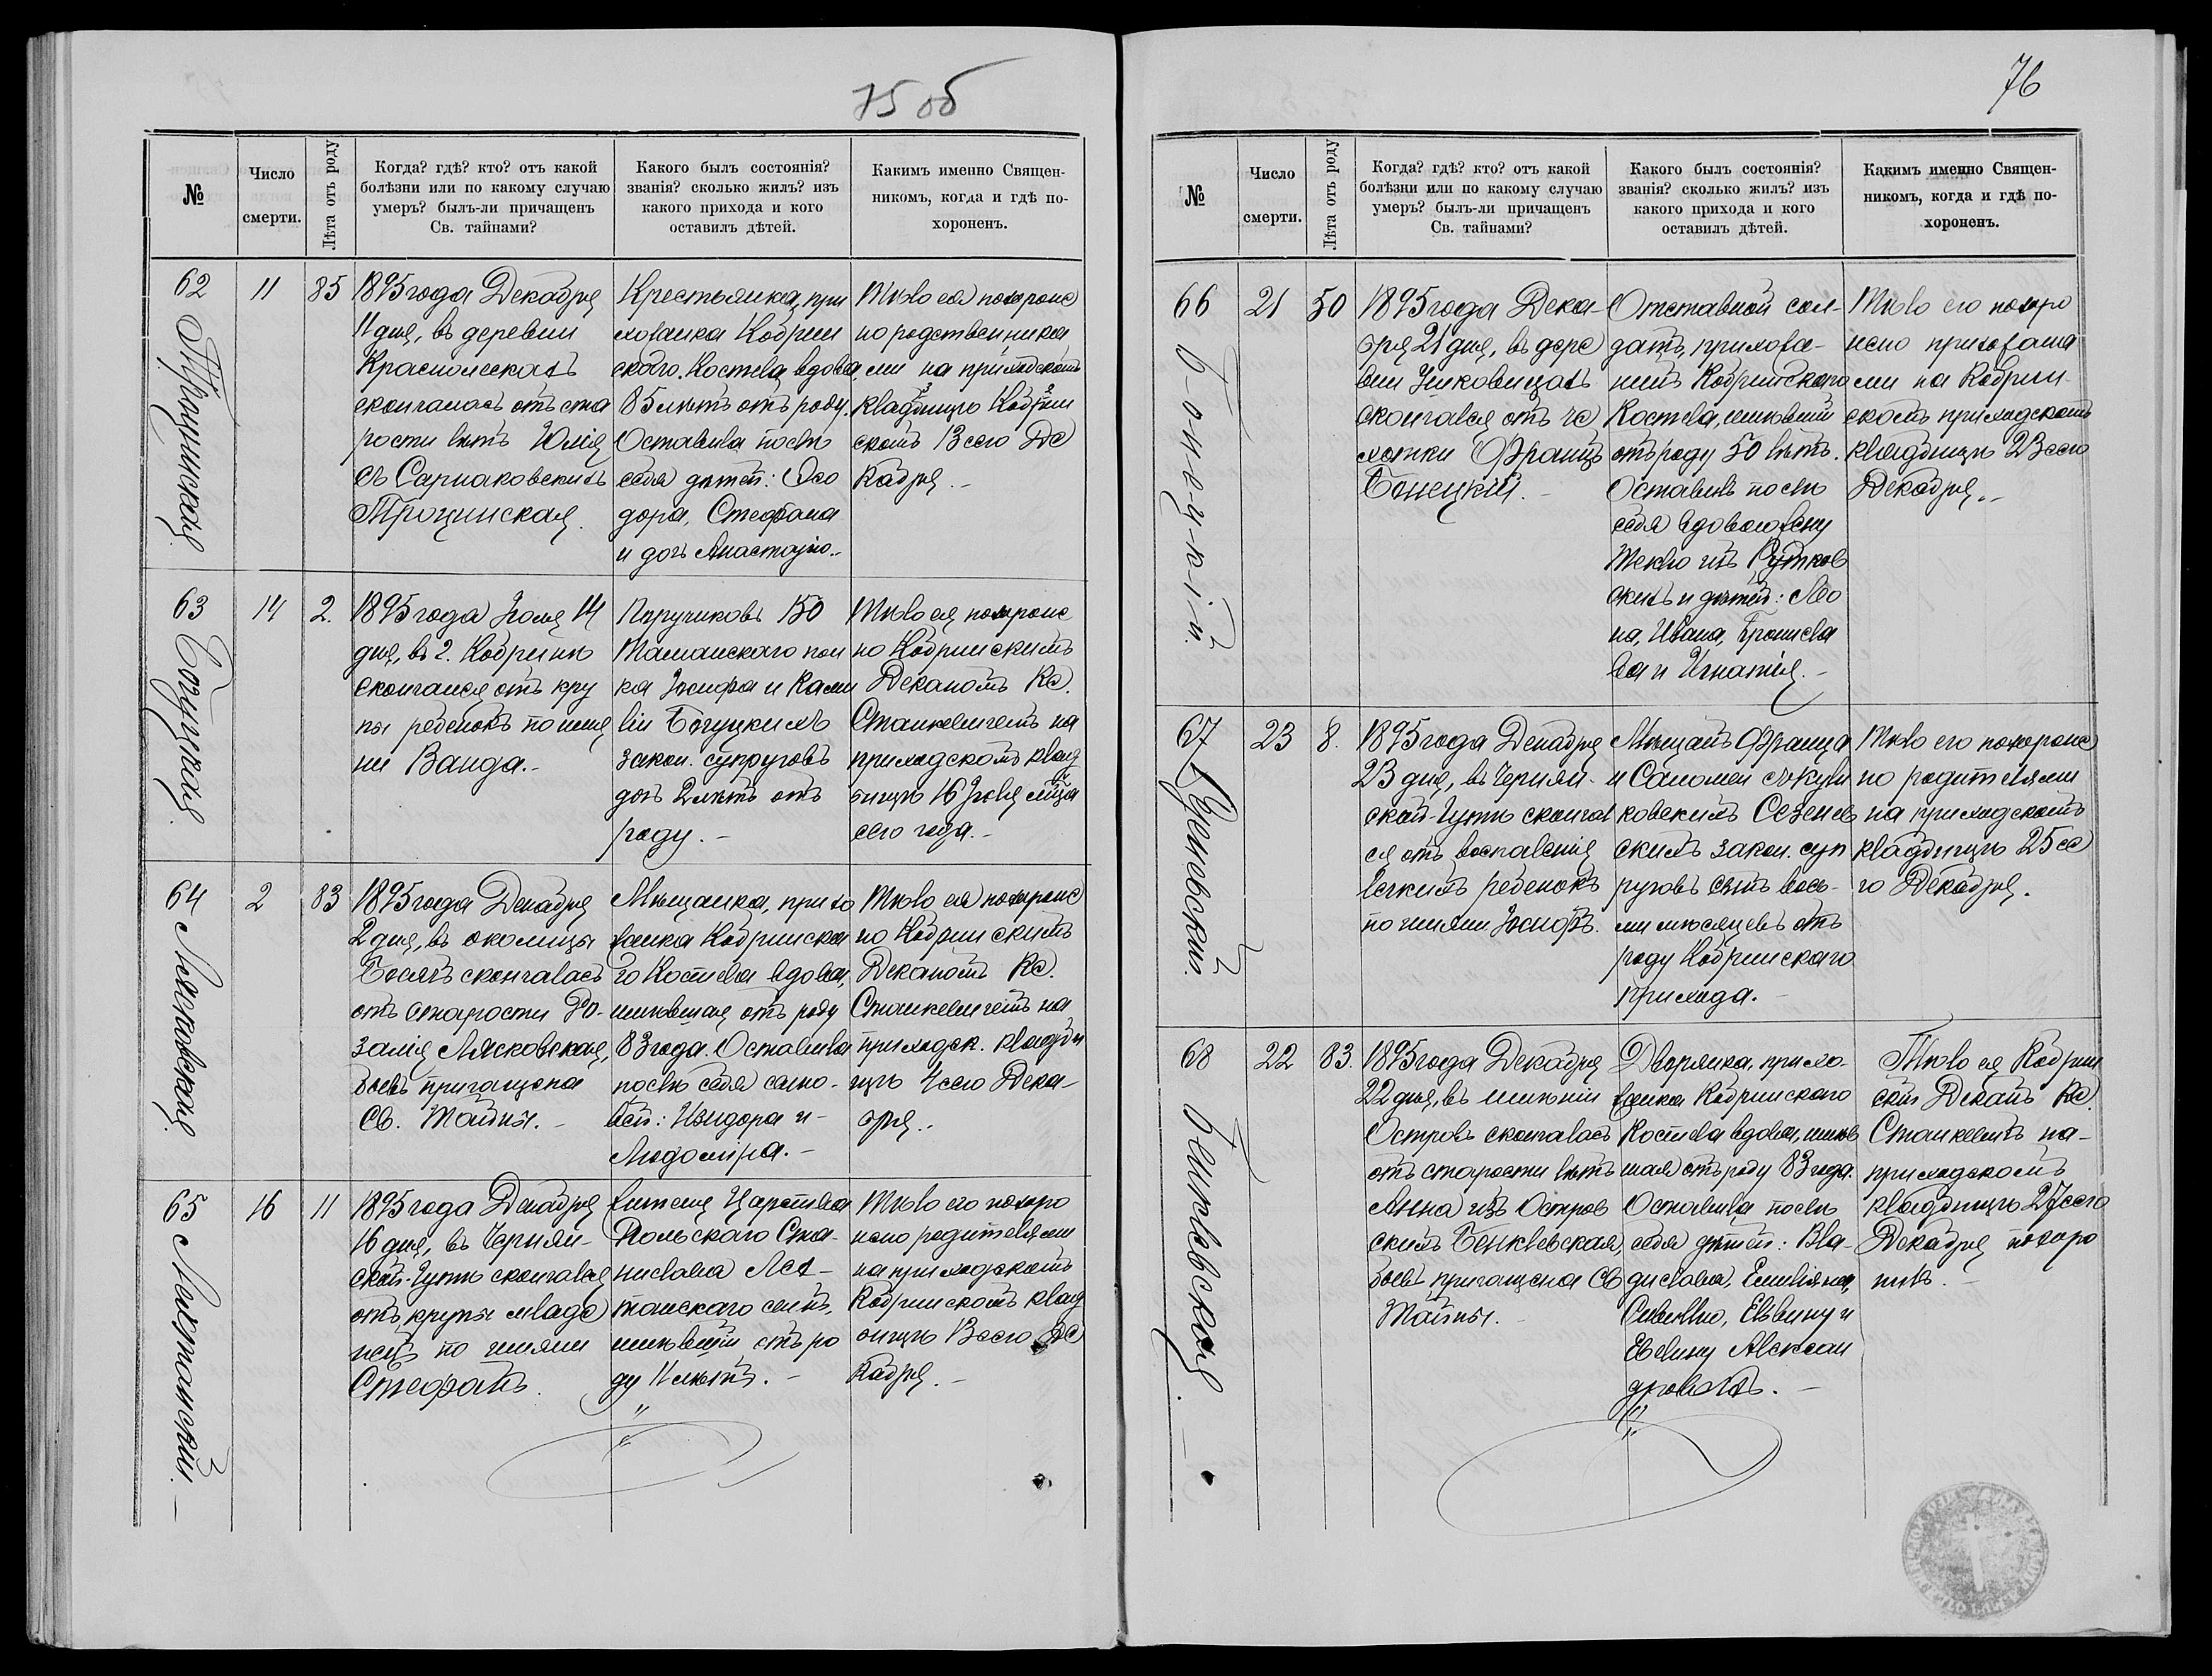 75 об
№
Число
смерти.
Лѣта отъ роду
Когда? гдѣ? кто? отъ какой
болѣзни или по какому случаю
умеръ? былъ-ли причащенъ
Св. тайнами?
Какого былъ состоянія?
званія? сколько жилъ? изъ
какого прихода и кого
оставилъ дѣтей.
Какимъ именно Священ-
никомъ, когда и гдѣ по-
хороненъ.
62
Троцинская
11
85
1895 года Декабря
11 дня, въ деревни
скончалась отъ ста
рости лѣтъ Юлія
съ Сарнаковскихъ
Троцинская.
Крестьянка, при
хожанка Кобрин
скаго Костела вдова
85 лѣтъ отъ роду.
Оставила послѣ
себя дѣтей: Ѳео
дора, Стефана
и доч Анастазію.-
Тѣло ея похороне
но родственника
ми на приходскомъ
кладбищѣ Кобрин
скомъ 13 сего Де
кабря.-
63
Богуцкая
14
2.
1895 года Іюля 14
дня, въ г. Кобринѣ
скончался отъ кру
пы ребенокъ по имя
ни Ванда.-
Поручиковъ 150
Таманскаго пол
ка Іосифа и Ками
ліи Богуцкихъ
закон. супруговъ
доч 2 лѣтъ отъ
роду.-
Тѣло ея похороне
но Кобринскимъ
Деканомъ Кс.
Станкевичемъ на
приходскомъ клад
бищѣ 16 Іюля мѣца
сего года.-
64
Лясковская
2
83
1895 года Декабря
2 дня, въ околицы
скончалась
отъ старости Ро-
залія Лясковская,
бывъ причащена
Св. Тайны.-
Мѣщанка, прихо
жанка Кобринска
го Костела вдова,
имѣвшая отъ роду
83 года. Оставила
послѣ себя сыно-
вей: Изидора и-
Людомира.-
Тѣло ея похороне
но Кобринскимъ
Деканомъ Кс.
Станкевичемъ на
приходск. кладби
щѣ 4 сего Дека-
бря.-
65
16
11
1895 года Декабря
16 дня, въ Черняи-
ской-Гутѣ скончался
отъ крупы младе
нецъ по имяни
Стефанъ.
Жителя Царства
Польскаго Ста-
нислава
сынъ,
имѣвшій отъ ро
ду 11 лѣтъ.-
Тѣло его похоро
нено родителями
на приходскомъ
Кобринскомъ клад
бищѣ 18 сего Де
кабря.-
76
№
Число
смерти.
Лѣта отъ роду
Когда? гдѣ? кто? отъ какой
болѣзни или по какому случаю
умеръ? былъ-ли причащенъ
Св. тайнами?
Какого былъ состоянія?
званія? сколько жилъ? изъ
какого прихода и кого
оставилъ дѣтей.
Какимъ именно Священ-
никомъ, когда и гдѣ по-
хороненъ.
66
Бонецкій.
21
50
1895 года Дека-
бря 21 дня, въ дере
вни
скончался отъ че
хотки Францъ
Бонецкій.-
Отставной сол-
датъ, прихожа-
нинъ Кобринскаго
Костела, имѣвшій
отъ роду 50 лѣтъ.
Оставивъ послѣ
себя вдовою жену
Теклю изъ Рутков
скихъ и дѣтей: Лео
на, Ивана, Брониcла
ва и Игнатія.-
Тѣло его похоро
нено прихожана
ми на Кобрин-
скомъ приходскомъ
кладбищѣ 23 сего
Декабря.-
67
23
8.
1895 года Декабря
23 дня, въ Черняи-
ской-Гутѣ скончал
ся отъ воспаленія
легкихъ ребенокъ
по имяни Іосифъ.
Мѣщанъ Франца
и Саломеи
закон. суп
руговъ сынъ вось-
ми мѣсяцевъ отъ
роду Кобринскаго
прихода.-
Тѣло его похороне
но родителями
на приходскомъ
кладбищѣ 25 се
го Декабря.
68
Бенклевская.-
22
83.
1895 года Декабря
22 дня, въ имѣніи
Островъ скончалась
отъ старости лѣтъ
Анна изъ Остров
скихъ Бенклевская,
бывъ причащена Св
Тайны.-
Дворянка, прихо-
жанка Кобринскаго
Костела вдова, имѣв
шая отъ роду 83 года.
Оставила послѣ
себя дѣтей: Вла-
дислава, Емиліяна,
и
Евелину Алексан
дровыхъ.-
Тѣло ея Кобрин
скій Деканъ Кс.
Станкевичъ на-
приходскомъ
кладбищѣ 27 сего
Декабря похоро
нилъ.-